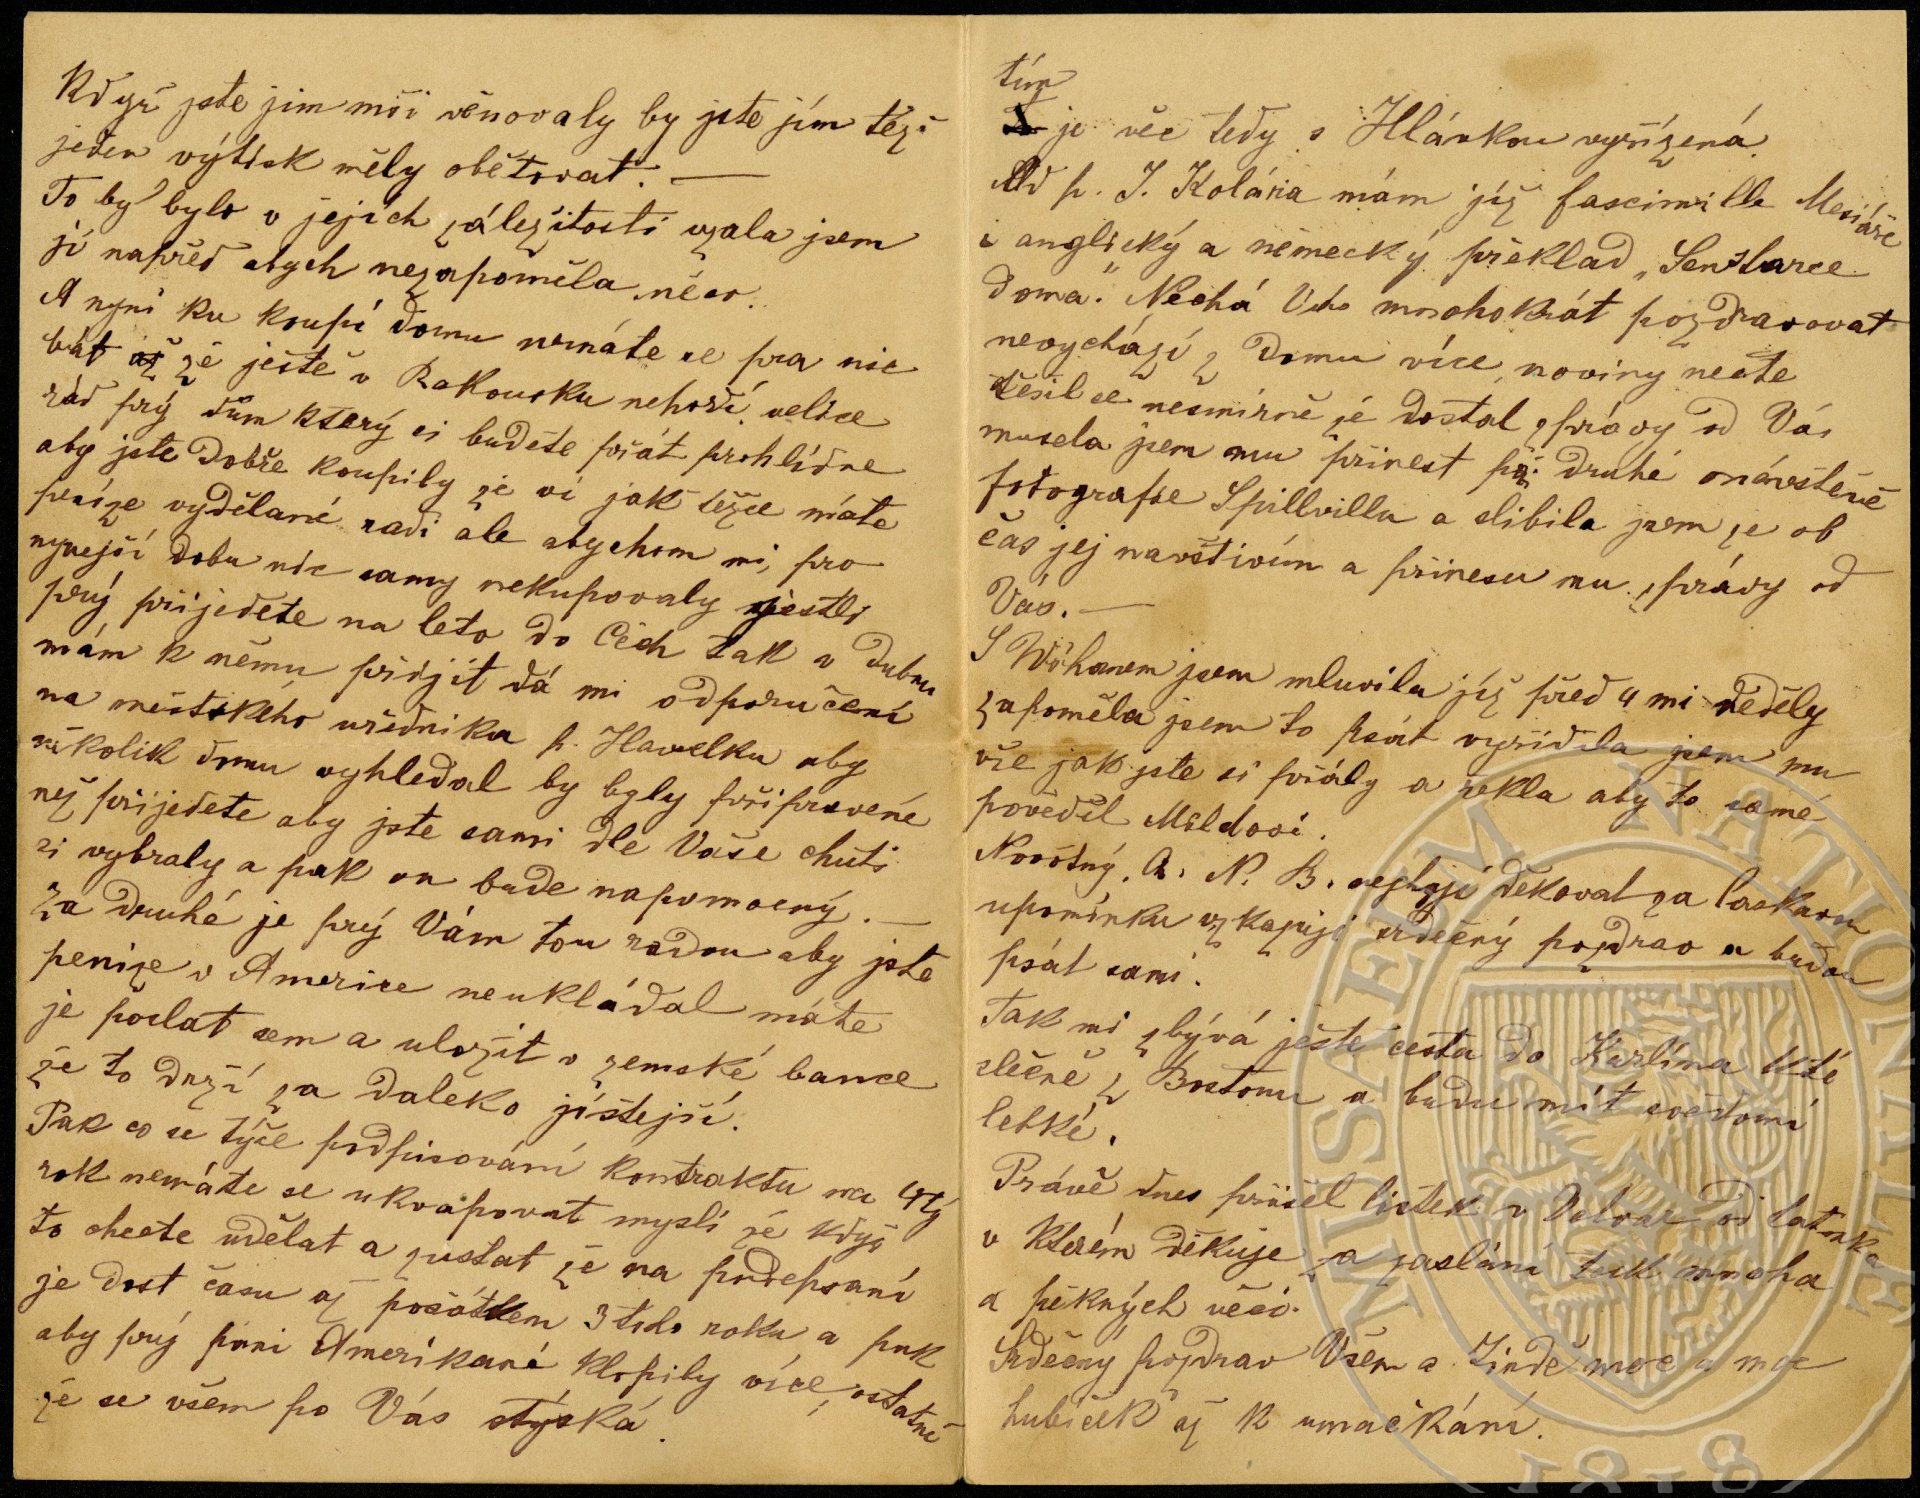 Když jste jim mši věnovaly by jste jím téži
jeden výtisk měly obětovat. —
To by bylo v jejich záležitosti vzala jsem
jí napřed abych nezapoměla něco.
A nyní ku koupí domu nemáte se pra nic
bát až zě ještě v Rakousku nehoří velice
rád prý dům který si budete přát prohlídne
aby jste dobře koupily ze ví jak těžce máte
peníze vydělané radí ale abychom mi, pro
nynejší dobu nic samy nekupovaly jestli
prý přijedete na leto do Čech tak v dubnu
mám k němu přijjít dá mi odporučení
na městského uředníka p. Havelku aby
několik domu vyhledal by byly připravené
než přijedete aby jste sami dle Vaše chuti
si vybraly a pak on bude napomocný. —
Za druhé je prý Vám tou radou aby jste
penize v Americe neukládal máte
je poslat sem a uložit v zemské bance
že to drží za daleko jistejší.
Pak co se týče podpisování kontraktu na 4tý
rok nemáte se ukvapovat myslí zé když
to chcete udělat a zustat že na podepsaní
je dost času až počátkem 3tího roku a pak
aby prý páni Amerikani klopily více, ostatně
že se všem po Vás stýská.
tím
je věc tedy s Hlávkou vyřízená.
Od p. J. Kolára mám jíž fascimille Mesiáše
i anglický a německý překlad „Sen Starce
doma." Nechá Vás mnohokrát pozdravovat
nevychází z domu více, noviny nečte
těšil se nesmírně jé dostal zprávy od Vás
musela jsem mu přinest při druhé návštěvě
fotografie Spillvillu a slibila jsem ze ob
čas jej navštivím a přinesu mu zprávy od
Vás. —
S jsem mluvila jíž před 4 mi neděly
zapoměla jsem to psát vyřídila jsem mu
vše jak jste si přály a rekla aby to samé
pověděl Mildovi.
Novotný. A. N. B. děkovat za laskavou
upomínku vzkazují srdečný pozdrav a budou
psát sami.
Tak mi zbývá ještě cesta do Karlína k té
slečně z Bostonu a budu mít svědomí
lehké.
Právě dnes přišel lístek z Velvar od tatínka
v kterém děkuje za zaslání tak mnoha
a pěkných věcí.
Srdečný pozdrav Všem a Zindě moc a moc
hubiček až k umačkání.
MUSAEUM NATIONALE
1818